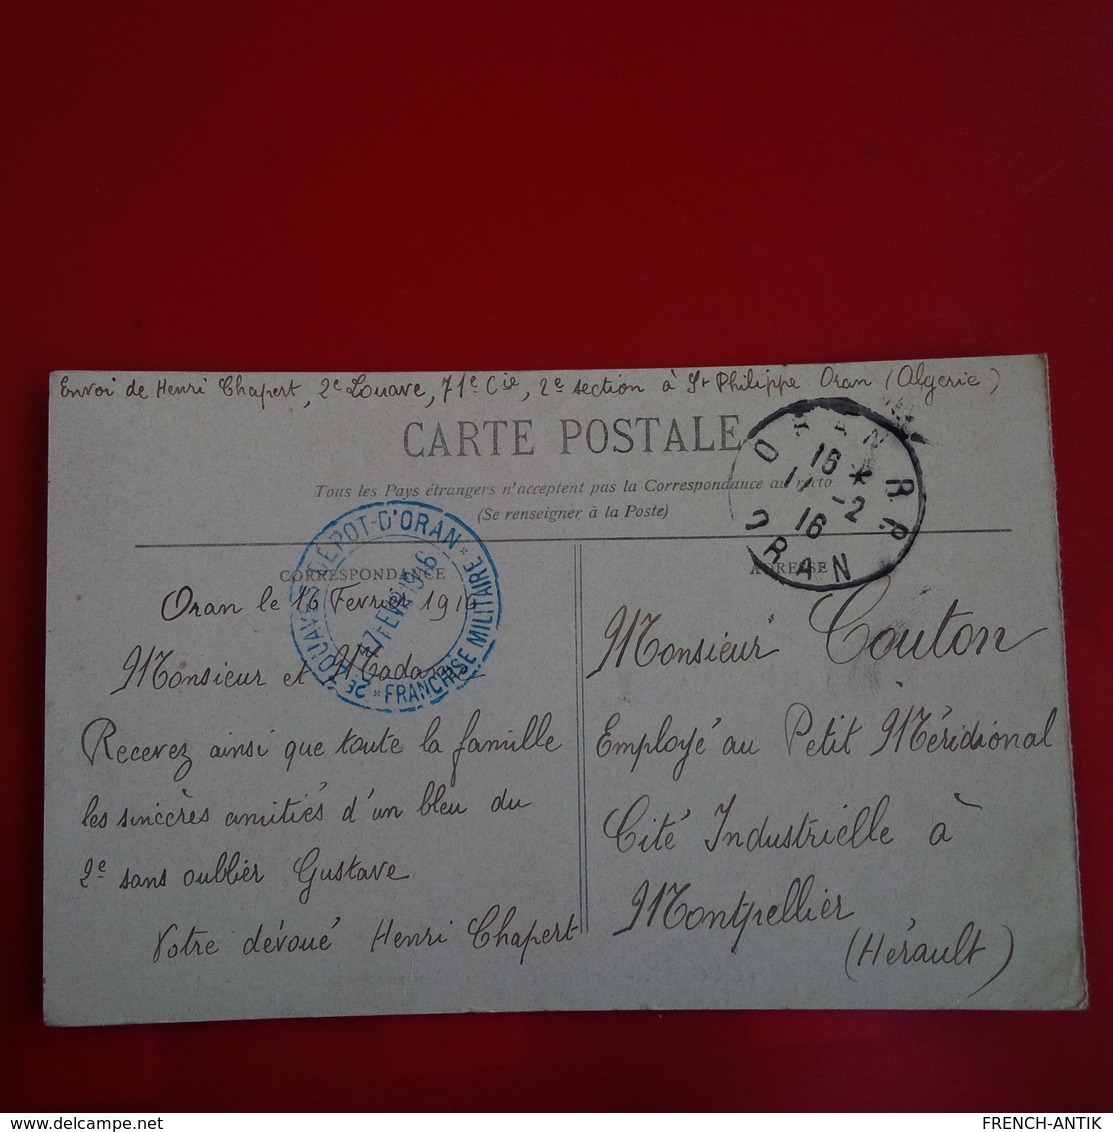 Envoi de Henri Chapert, 2e Zouave, 71e Cie, 2e section à St Philippe Oran (Algerie)
CARTE POSTALE
Tous les Pays étrangers n'acceptent pas la Correspondance au recto
(Se renseigner à la Poste)
CORRESPONDANCE
Oran le 16 Fevrier 1916
Monsieur et Madame
Recevez ainsi que toute la famille
les sincères amitiés d'un bleu du
2e sans oublier Gustave
Votre dévoué Henri Chapert
2E ZOUAVES DÉPOT-D'ORAN * FRANCHISE MILITAIRE *
ORAN R.P.
16 *
-2
16
ORAN
ADRESSE
Monsieur Couton
Employé au Petit Méridional
Cité Industrielle à
Montpellier
(Hérault)
delcampe.net
FRENCH-ANTIK